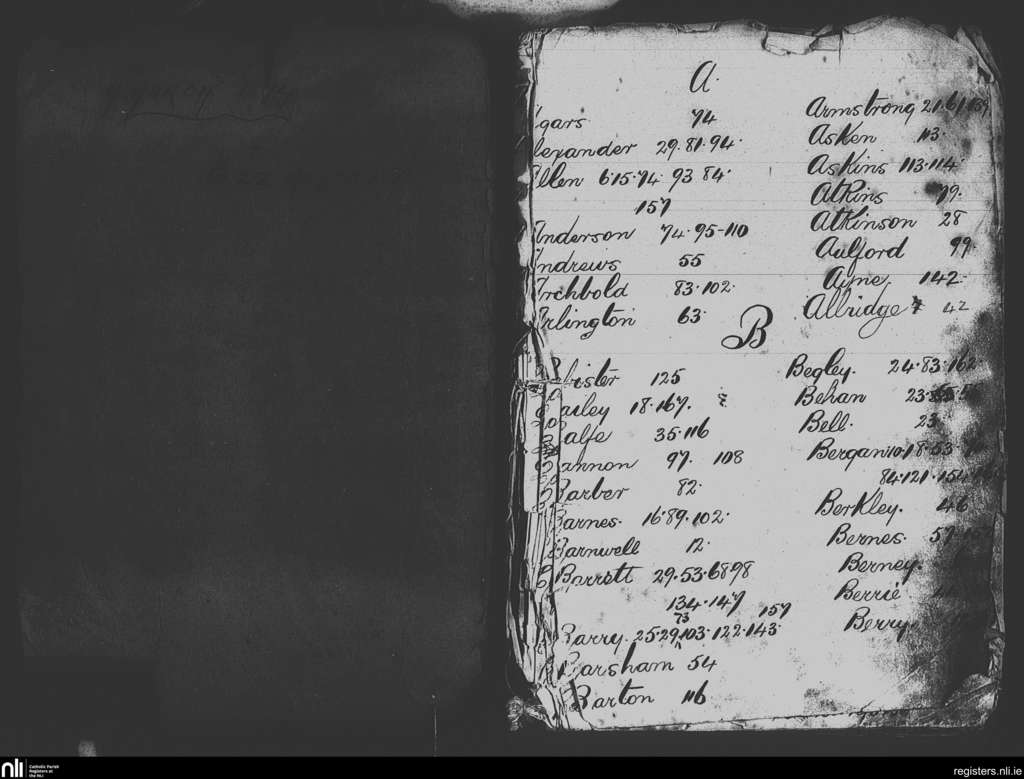 A.
gars 74
lexander 29.81.94.
Allen 6.15.74. 93 84.
157
Anderson 74.95-110
Andrews 55
Archbold 83.102.
Arlington 63.
Armstrong 21.61.139
Asken 113.
Askins 113.114.
Atkins 79.
Atkinson 28
Aulford 99
Ayne, 142.
Allridge 42
B
bister 125
Bailey 18.167.
Balfe 35.116
Bannon 97. 108
Barber 82.
Barnes. 16.89.102.
Barnwell 12.
Barrett 29.53.6898
134.147
73 157
Barry. 25.29,103.122.143.
Barsham 54
Barton 116
Begley. 24.83.162
Behan 23.
Bell. 23
Bergan 10.18.53
84.121.154.
Berkley. 46
Bernes. 57
Berney.
Berrie
Berry.
nli Catholic Parish
Registers at
the NLI
registers.nli.ie